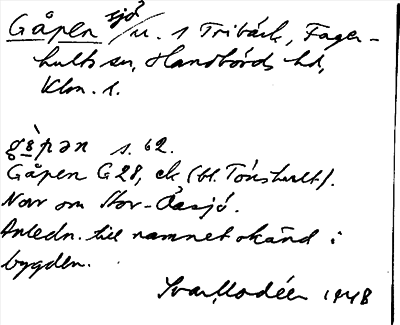 Gåpen sjö/u. s Tribäck, Fager-
hults sn, Handbörds hd,
Klm. l.
gåpən s. 62.
Gåpen G28, ek (bl. Tönshult).
Norr om Stor-Åasjö.
Anledn. till namnet okänd i
bygden.
Ivar Modéer 1948